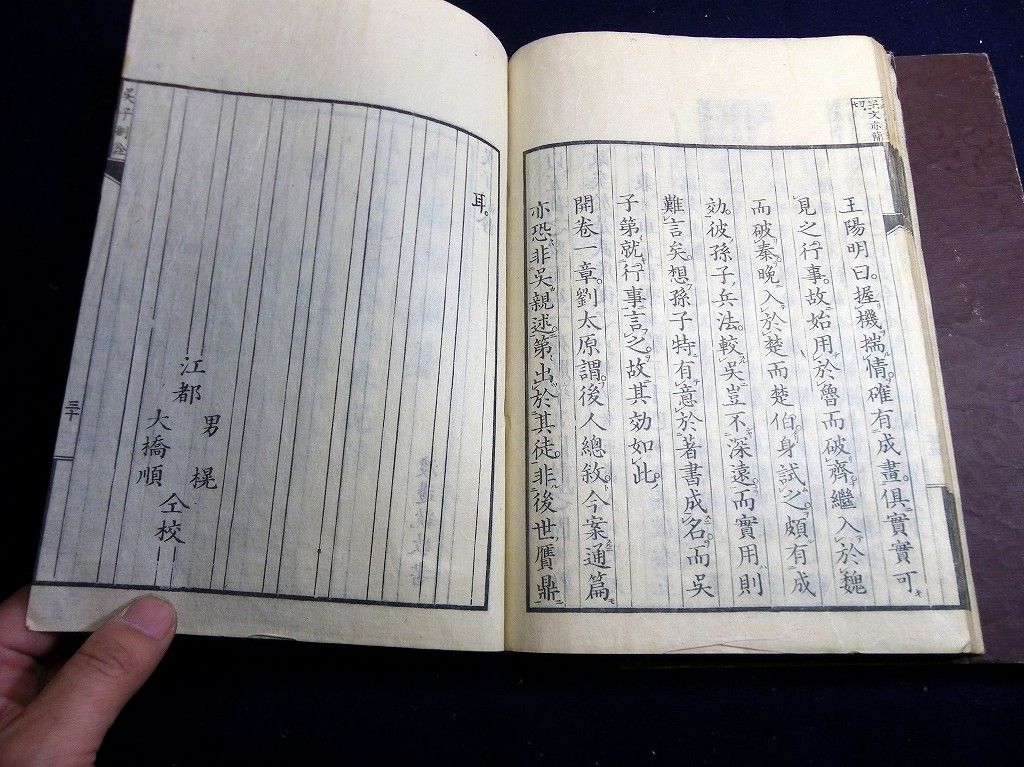 王陽明曰。握機揣情。確有成畫。俱實實可
見之行事。故始用於魯而破齊。繼入於魏
而破秦。晚入於楚而楚伯。身試之。頗有成
効。彼孫子兵法。較吳豈不深遠。而實用則
難言矣。想孫子特有意於著書成名。而吳
子第就行事言之。故其効如此。
開卷一章。劉太原謂。後人總敘。今案通篇
亦恐非吳親述。第出於其徒。非後世贋鼎
耳。
男 榥
江都 大橋順 仝校
吳子副詮
三十
吳文亦簡
切。